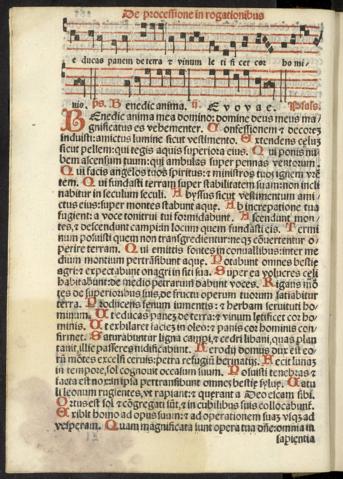 De processione in rogationibus
e ducas panem de terra & vinum le ti fi cet cor ho mi/
nis. ps. Benedic anima. Evovae. Psalmus.
BEnedic anima mea domino: domine deus meus ma/
gnificatus es vehementer. Confessionem & decorem
induisti: amictus lumine sicut vestimento. Extendens celum
sicut pellem: qui tegis aquis superiora eius. Qui ponis nu
bem ascensum tuum: qui ambulas super pennas ventorum.
Qui facis angelos tuos spiritus: & ministros tuos ignem vrē
tem. Qui fundasti terram super stabilitatem suam: non incli
nabitur in seculum seculi. Abyssus sicut vestimentum ami/
ctus eius: super montes stabunt aque. Ab increpatione tua
fugient: a voce tonitrui tui formidabunt. Ascendunt mon/
tes, & descendunt campi: in locum quem fundasti eis. Termi
num posuisti quem non transgredientur: neqꝫ cōuertentur o/
perire terram. Qui emittis fontes in conuallibus: inter me
dium montium pertrāsibunt aque. Potabunt omnes bestie
agri: expectabunt onagri in siti sua. Super ea volucres celi
habitabunt: de medio petrarum dabunt voces. Rigans mō/
tes de superioribus suis: de fructu operum tuorum satiabitur
terra. Producens fenum iumentis: & herbam seruituti ho/
minum. Ut educas panem de terra: & vinum letificet cor ho/
minis. Ut exhilaret faciem in oleo: & panis cor hominis con
firmet. Saturabuntur ligna campi, & cedri libani, quas plan
tauit, illic passeres nidificabunt. Herodij domus dux est eo/
rū mōtes excelsi ceruis: petra refugiū herinatijs. Fecit lunam
in tempore, sol cognouit occasum suum. Posuisti tenebras &
facta est nox: in ipsa pertransibunt omnes bestie sylue. Catu
li leonum rugientes, vt rapiant: & querant a Deo escam sibi.
Ortus est sol & cōgregati sūt, & in cubilibus suis collocabunt.
Exibit homo ad opus suum: & ad operationem suam vsqꝫ ad
vesperam. Quam magnificata sunt opera tua dñe: omnia in
sapientia